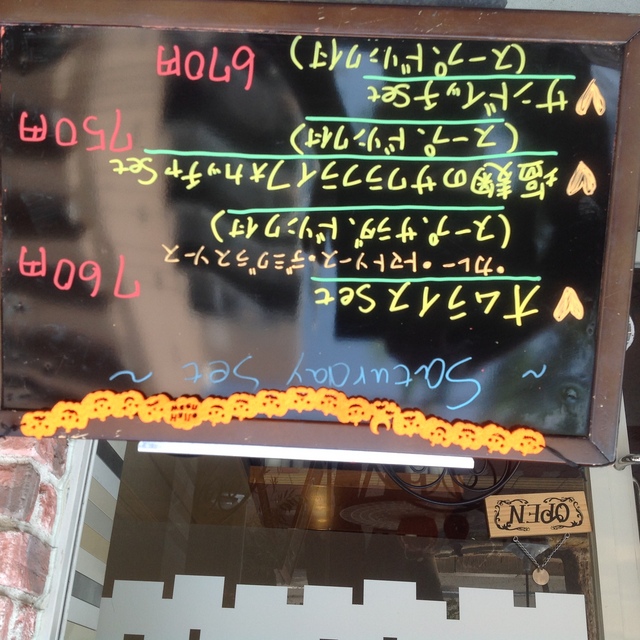 ~ Saturday Set ~
オムライスSet
・カレー・トマトソース・デミグラスソース
760円
(スープ、サラダ、ドリンク付)
塩麹のサワラフライフォカッチャSet
(スープ、ドリンク付)
750円
サンドイッチSet
(スープ、ドリンク付)
670円
OPEN